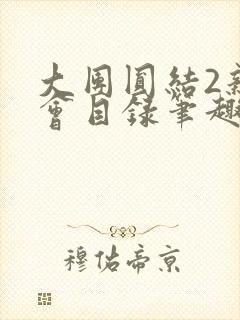 大团圆结2新
会目录笔趣
穆佑帝京